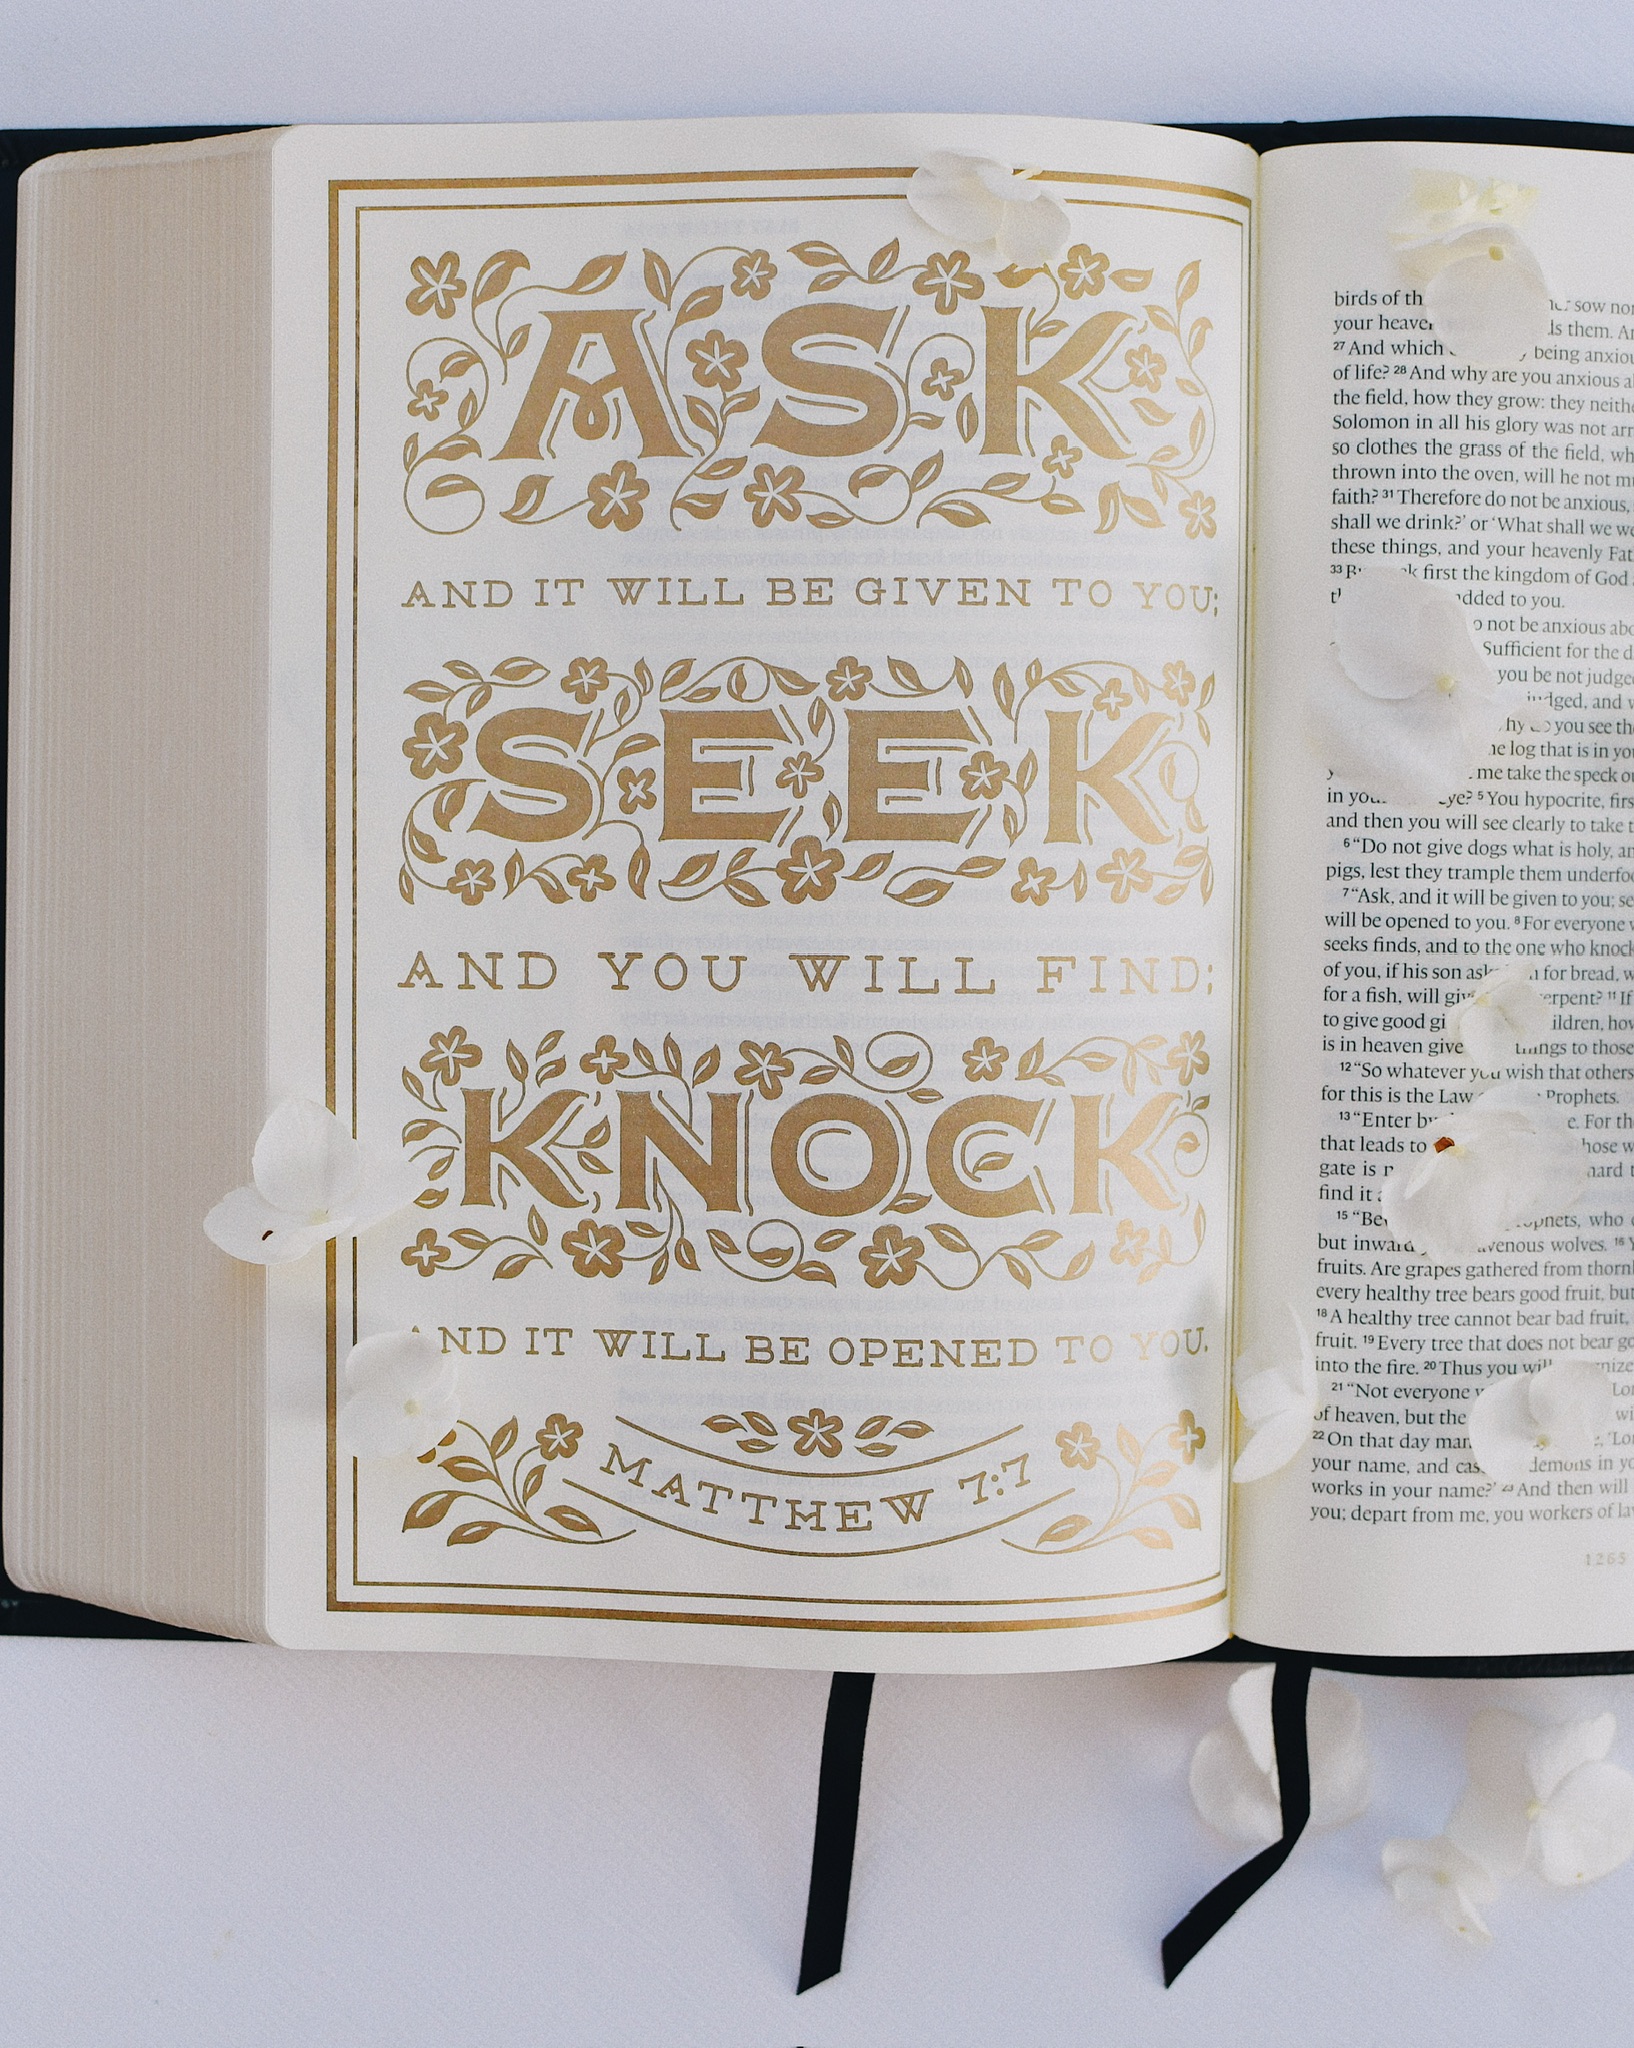 ASK
AND IT WILL BE GIVEN TO YOU;
SEEK
AND YOU WILL FIND;
KNOCK
AND IT WILL BE OPENED TO YOU.
MATTHEW 7:7
birds of sow
your them.
27 And which being
of life? 28 And why are you anxious
the field, how they grow: they
Solomon in all his glory was not
so clothes the grass of the field,
thrown into the oven, will he not
faith? 31 Therefore do not be anxious,
shall we drink?' or 'What shall we
these things, and your heavenly
33 first the kingdom of God
added to you.
not be anxious
Sufficient for the
you be not
and
you see
log that is in
me take the speck
in 5 You hypocrite,
and then you will see clearly to take
6 “Do not give dogs what is holy,
pigs, lest they trample them
7 “Ask, and it will be given to you;
will be opened to you. 8 For everyone
seeks finds, and to the one who
of you, if his son for bread,
for a fish, will 11 If
to give good
is in heaven give to those
12 “So whatever you wish that others
for this is the Law Prophets.
13 “Enter For
that leads to
gate is
find it
15 who
but ravenous wolves. 16
fruits. Are grapes gathered from
every healthy tree bears good fruit,
18 A healthy tree cannot bear bad fruit,
fruit. 19 Every tree that does not bear
into the fire. 20 Thus you
21 “Not everyone
of heaven, but the
22 On that day
your name, and demons in
works in your name?' 23 And then will
you; depart from me, you workers of
1265